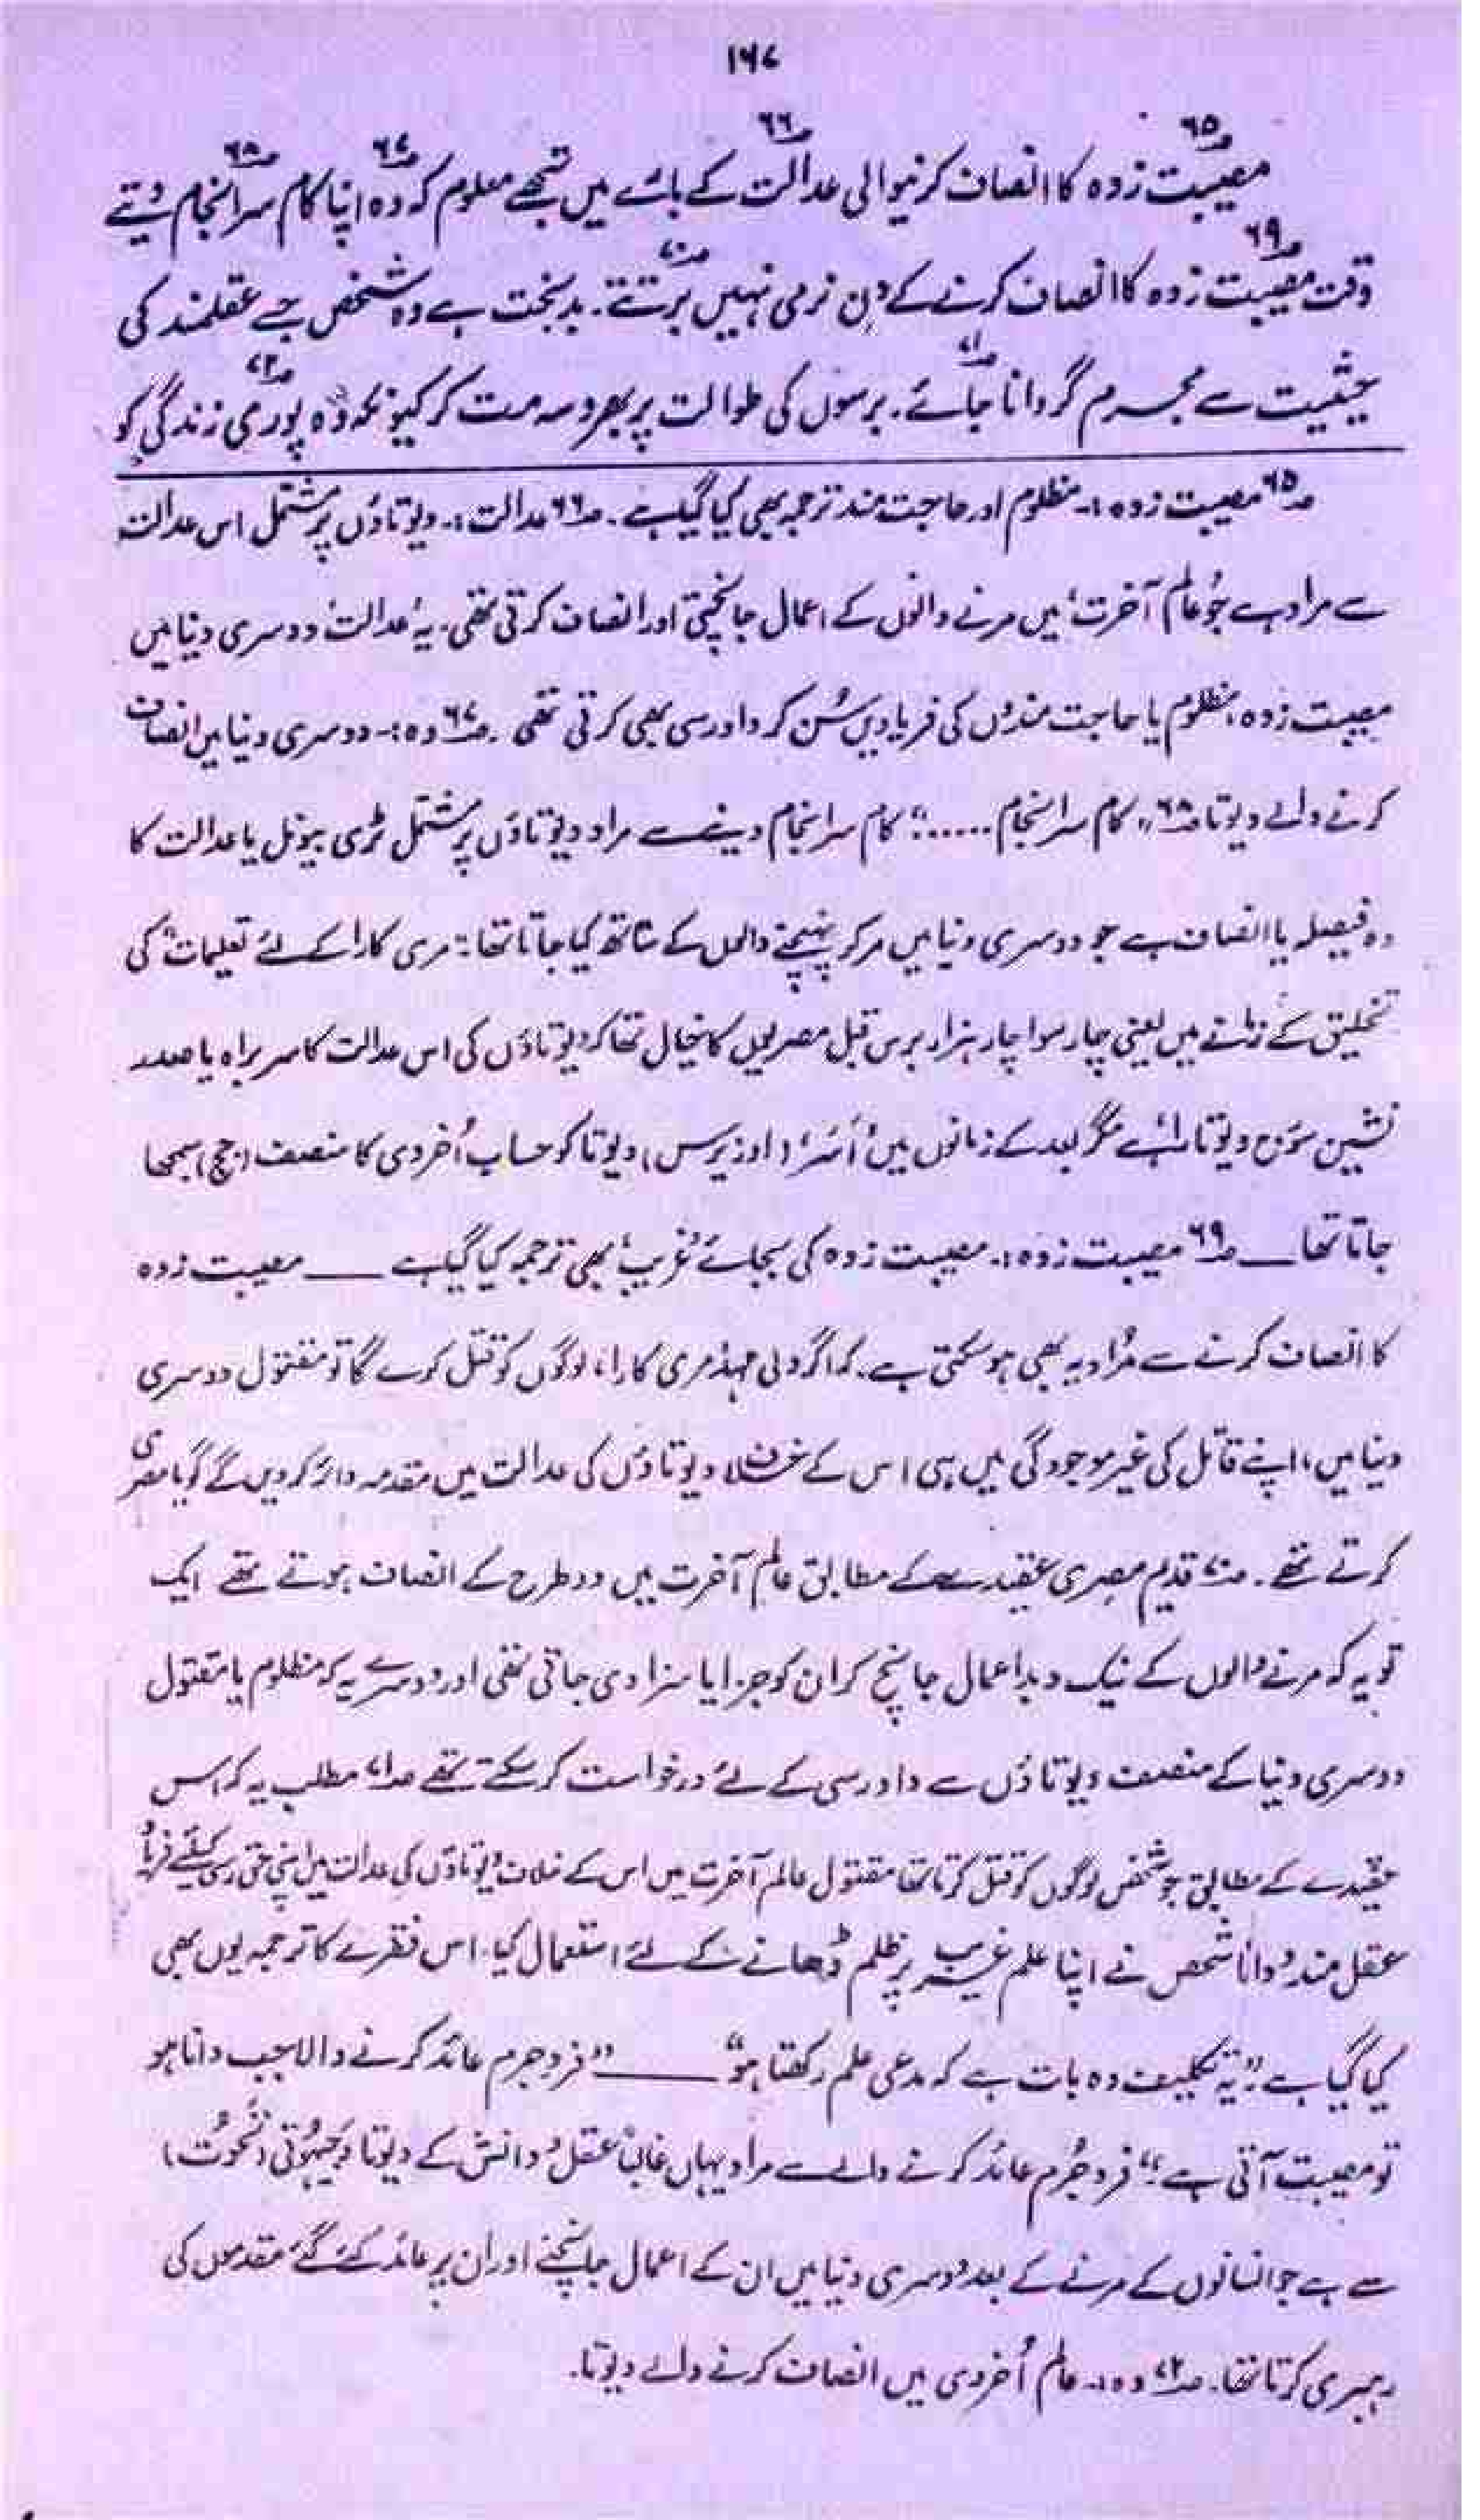 ۱۶۷
مصیبت زدہ۶۵ کا انصاف کرنیوالی عدالت۶۶ کے بارے میں تجھے معلوم کہ وہ۶۷ اپنا کام سرانجام۶۸ دیتے
وقت مصیبت زدہ۶۹ کا انصاف کرنے کے دن نرمی نہیں برتتے۷۰۔ بدبخت ہے وہ شخص جسے عقلمند کی
حیثیت سے مجرم گردانا جائے۷۱۔ برسوں کی طوالت پر بھروسہ مت کر کیونکہ وہ۷۲ پوری زندگی کو
۶۵ مصیبت زدہ:۔ مظلوم اور حاجت مند ترجمہ بھی کیا گیا ہے۔ ۶۶ عدالت:۔ دیوتاؤں پر مشتمل اس عدالت
سے مراد ہے جو ’عالم آخرت‘ میں مرنے والوں کے اعمال جانچتی اور انصاف کرتی تھی۔ یہ ’عدالت‘ دوسری دنیا میں
مصیبت زدہ، مظلوم یا حاجت مندوں کی فریادیں سُن کر دادرسی بھی کرتی تھی۔ ۶۷ وہ:۔ دوسری دنیا میں انصاف
کرنے والے دیوتا ۶۸ ”کام سرانجام ......“: کام سرانجام دینے سے مراد دیوتاؤں پر مشتمل ٹری بیونل یا عدالت کا
وہ فیصلہ یا انصاف ہے جو دوسری دنیا میں مر کر پہنچنے والوں کے ساتھ کیا جاتا تھا: ”مری کارا کے لئے تعلیمات“ کی
تخلیق کے زمانے میں یعنی چار سوا چار ہزار برس قبل مصریوں کا خیال تھا کہ دیوتاؤں کی اس عدالت کا سربراہ یا صدر
نشین سورج دیوتا ’را‘ ہے مگر بعد کے زمانوں میں ’اُسَر‘ (اوزیرس) دیوتا کو حساب اُخردی کا منصف (جج) سمجھا
جاتا تھا ـــ ۶۹ مصیبت زدہ:۔ مصیبت زدہ کی بجائے ’غریب‘ بھی ترجمہ کیا گیا ہے ـــــ مصیبت زدہ
کا انصاف کرنے سے مُراد یہ بھی ہو سکتی ہے۔ کہ اگر ولی عہد مری کارا، لوگوں کو قتل کرے گا تو مقتول دوسری
دنیا میں، اپنے قاتل کی غیر موجودگی میں ہی اس کے خلاف دیوتاؤں کی عدالت میں مقدمہ دائر کر دیں گے گویا مصری
کرتے تھے۔ ۷۰ قدیم مصری عقیدے کے مطابق عالم آخرت میں دو طرح کے انصاف ہوتے تھے ایک
تو یہ کہ مرنے والوں کے نیک و بد اعمال جانچ کر ان کو جزا یا سزا دی جاتی تھی اور دوسرے یہ کہ مظلوم یا مقتول
دوسری دنیا کے منصف دیوتاؤں سے دادرسی کے لئے درخواست کر سکتے تھے ۷۱ مطلب یہ کہ اس
عقیدے کے مطابق جو شخص لوگوں کو قتل کرتا تھا مقتول عالم آخرت میں اس کے خلاف دیوتاؤں کی عدالت میں اپنی حق رسی کیلئے
عقل مند و دانا شخص نے اپنا علم غریب پر ظلم ڈھانے کے لئے استعمال کیا۔ اس فقرے کا ترجمہ یوں بھی
کیا گیا ہے: ”یہ تکلیف دہ بات ہے کہ مدعی علم رکھتا ہو“ ـــــ ”فرد جرم عائد کرنے والا جب دانا ہو
تو مصیبت آتی ہے“: فرد جُرم عائد کرنے والے سے مراد یہاں غالباً عقل و دانش کے دیوتا
سے ہے جو انسانوں کے مرنے کے بعد دوسری دنیا میں ان کے اعمال جانچنے اور ان پر عائد کئے گئے مقدموں کی
رہبری کرتا تھا۔ ۷۲ وہ:۔ عالم اُخروی میں انصاف کرنے والے دیوتا۔